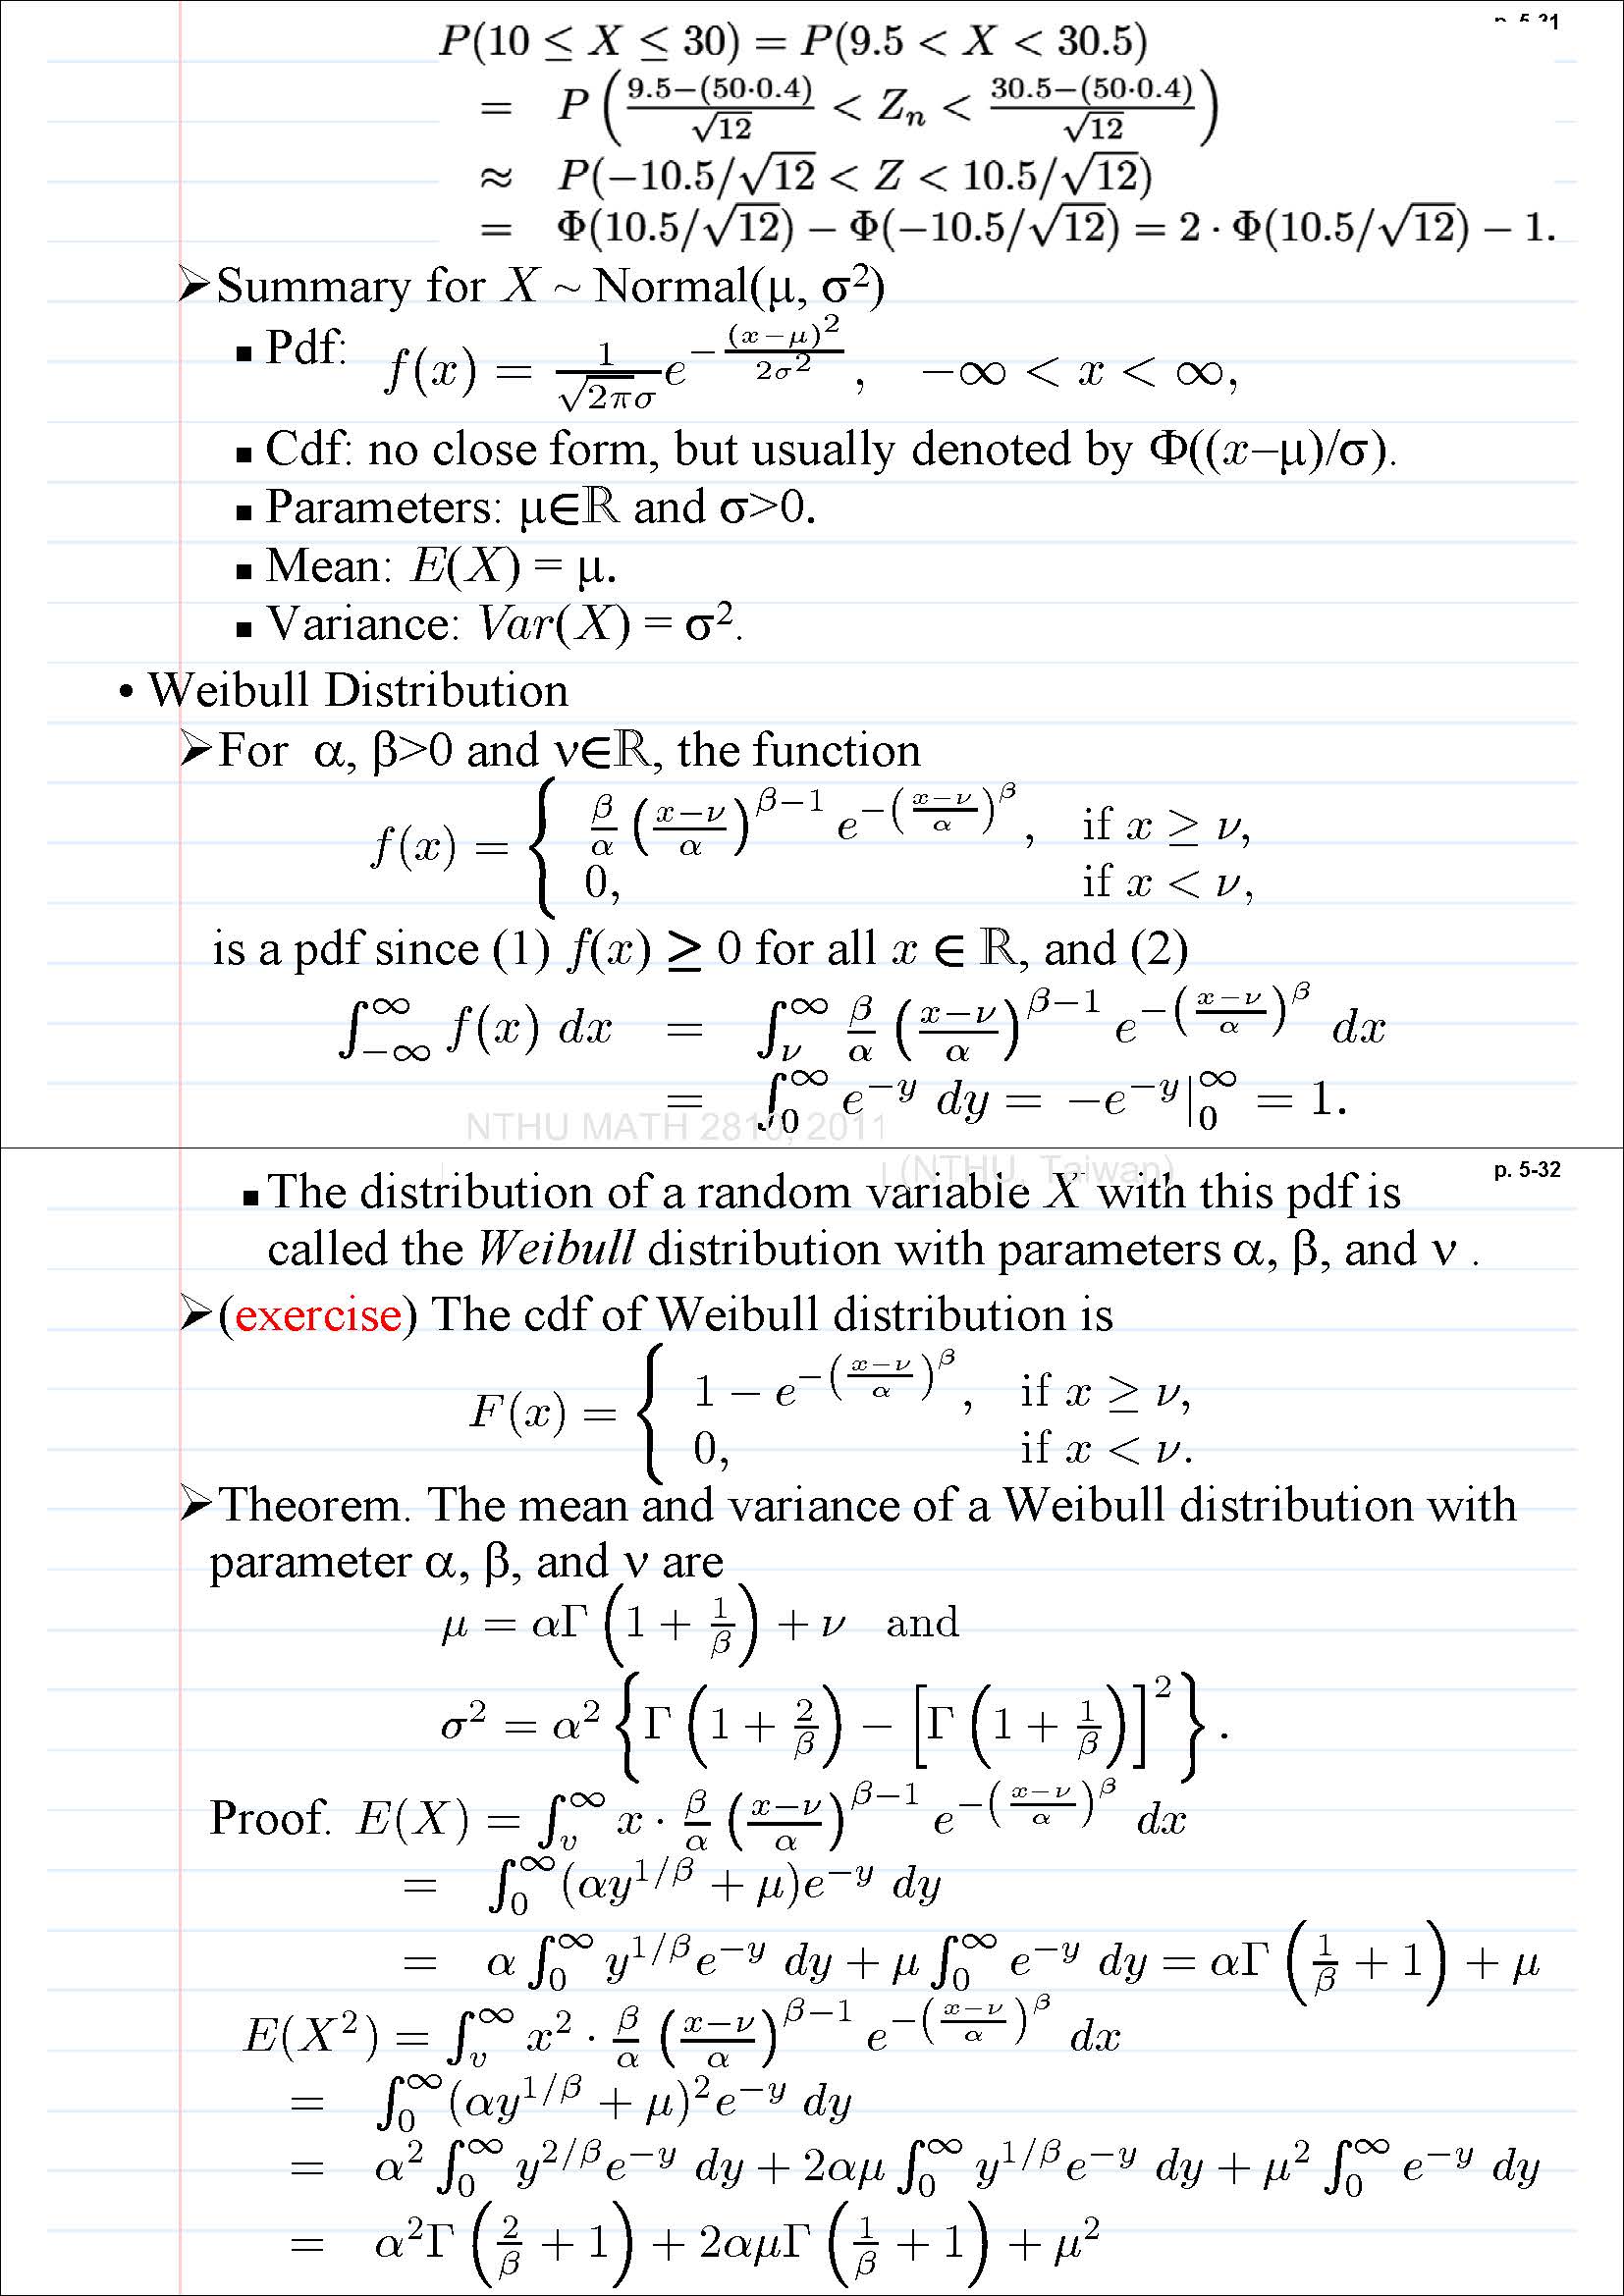 p. 5-31
P(10 ≤ X ≤ 30) = P(9.5 < X < 30.5)
= P( (9.5−(50·0.4))/√12 < Zₙ < (30.5−(50·0.4))/√12 )
≈ P(−10.5/√12 < Z < 10.5/√12)
= Φ(10.5/√12) − Φ(−10.5/√12) = 2 · Φ(10.5/√12) − 1.
➢Summary for X ~ Normal(μ, σ²)
▪ Pdf: f(x) = 1/(√2π σ) e^{−(x−μ)²/(2σ²)}, −∞ < x < ∞,
▪ Cdf: no close form, but usually denoted by Φ((x−μ)/σ).
▪ Parameters: μ∈ℝ and σ>0.
▪ Mean: E(X) = μ.
▪ Variance: Var(X) = σ².
• Weibull Distribution
➢For α, β>0 and ν∈ℝ, the function
f(x) = { (β/α) ((x−ν)/α)^{β−1} e^{−((x−ν)/α)^β}, if x ≥ ν,
0, if x < ν,
is a pdf since (1) f(x) ≥ 0 for all x ∈ ℝ, and (2)
∫_{−∞}^{∞} f(x) dx = ∫_ν^∞ (β/α) ((x−ν)/α)^{β−1} e^{−((x−ν)/α)^β} dx
= ∫_0^∞ e^{−y} dy = −e^{−y}|_0^∞ = 1.
NTHU MATH 2810, 2011
(NTHU, Taiwan)
p. 5-32
▪ The distribution of a random variable X with this pdf is
called the Weibull distribution with parameters α, β, and ν .
➢(exercise) The cdf of Weibull distribution is
F(x) = { 1 − e^{−((x−ν)/α)^β}, if x ≥ ν,
0, if x < ν.
➢Theorem. The mean and variance of a Weibull distribution with
parameter α, β, and ν are
μ = αΓ(1 + 1/β) + ν and
σ² = α² {Γ(1 + 2/β) − [Γ(1 + 1/β)]²}.
Proof. E(X) = ∫_υ^∞ x · (β/α) ((x−ν)/α)^{β−1} e^{−((x−ν)/α)^β} dx
= ∫_0^∞ (αy^{1/β} + μ)e^{−y} dy
= α ∫_0^∞ y^{1/β}e^{−y} dy + μ ∫_0^∞ e^{−y} dy = αΓ(1/β + 1) + μ
E(X²) = ∫_υ^∞ x² · (β/α) ((x−ν)/α)^{β−1} e^{−((x−ν)/α)^β} dx
= ∫_0^∞ (αy^{1/β} + μ)²e^{−y} dy
= α² ∫_0^∞ y^{2/β}e^{−y} dy + 2αμ ∫_0^∞ y^{1/β}e^{−y} dy + μ² ∫_0^∞ e^{−y} dy
= α²Γ(2/β + 1) + 2αμΓ(1/β + 1) + μ²